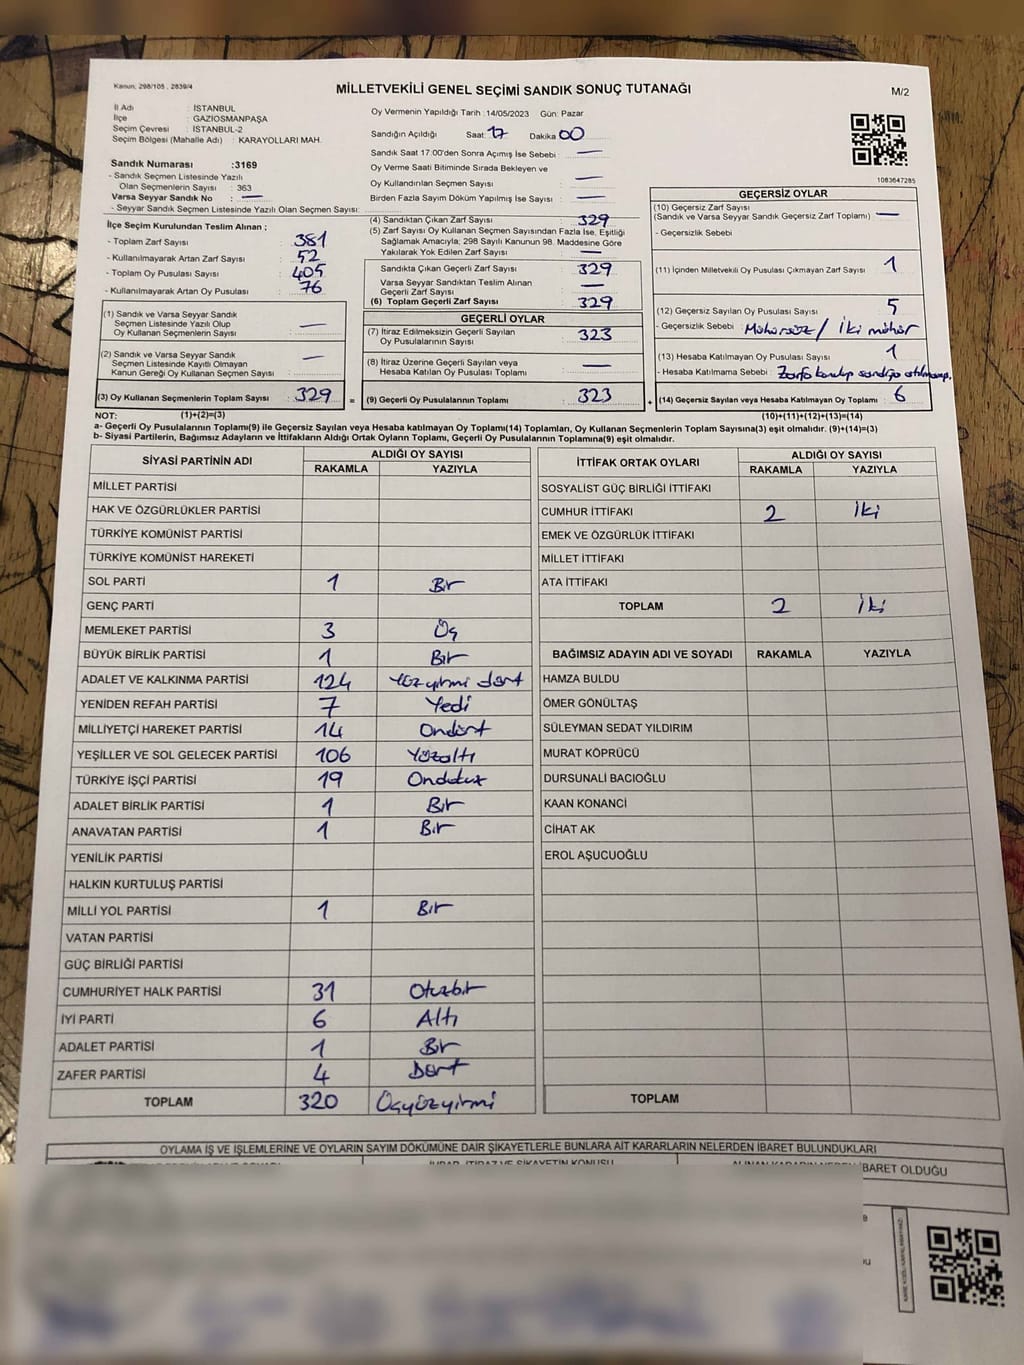 Kanun; 298/105 , 2839/4
MİLLETVEKİLİ GENEL SEÇİMİ SANDIK SONUÇ TUTANAĞI
M/2
İl Adı : İSTANBUL
İlçe : GAZİOSMANPAŞA
Seçim Çevresi : İSTANBUL-2
Seçim Bölgesi (Mahalle Adı) : KARAYOLLARI MAH.
Sandık Numarası :3169
- Sandık Seçmen Listesinde Yazılı
Olan Seçmenlerin Sayısı : 363
Varsa Seyyar Sandık No : —
- Seyyar Sandık Seçmen Listesinde Yazılı Olan Seçmen Sayısı:
Oy Vermenin Yapıldığı Tarih : 14/05/2023 Gün: Pazar
Sandığın Açıldığı Saat: 17 Dakika 00
Sandık Saat 17:00'den Sonra Açımış İse Sebebi : —
Oy Verme Saati Bitiminde Sırada Bekleyen ve
Oy Kullandırılan Seçmen Sayısı : —
Birden Fazla Sayım Döküm Yapılmış İse Sayısı : —
1083647285
İlçe Seçim Kurulundan Teslim Alınan ;
- Toplam Zarf Sayısı : 381
- Kullanılmayarak Artan Zarf Sayısı : 52
- Toplam Oy Pusulası Sayısı : 405
- Kullanılmayarak Artan Oy Pusulası : 76
(1) Sandık ve Varsa Seyyar Sandık
Seçmen Listesinde Yazılı Olup
Oy Kullanan Seçmenlerin Sayısı : —
(2) Sandık ve Varsa Seyyar Sandık
Seçmen Listesinde Kayıtlı Olmayan
Kanun Gereği Oy Kullanan Seçmen Sayısı : —
(3) Oy Kullanan Seçmenlerin Toplam Sayısı : 329 =
(4) Sandıktan Çıkan Zarf Sayısı : 329
(5) Zarf Sayısı Oy Kullanan Seçmen Sayısından Fazla İse, Eşitliği
Sağlamak Amacıyla; 298 Sayılı Kanunun 98. Maddesine Göre
Yakılarak Yok Edilen Zarf Sayısı : —
Sandıkta Çıkan Geçerli Zarf Sayısı : 329
Varsa Seyyar Sandıktan Teslim Alınan
Geçerli Zarf Sayısı : —
(6) Toplam Geçerli Zarf Sayısı : 329
GEÇERLİ OYLAR
(7) İtiraz Edilmeksizin Geçerli Sayılan
Oy Pusulalarının Sayısı : 323
(8) İtiraz Üzerine Geçerli Sayılan veya
Hesaba Katılan Oy Pusulası Toplamı : —
(9) Geçerli Oy Pusulalarının Toplamı : 323 +
GEÇERSİZ OYLAR
(10) Geçersiz Zarf Sayısı
(Sandık ve Varsa Seyyar Sandık Geçersiz Zarf Toplamı) : —
- Geçersizlik Sebebi :
(11) İçinden Milletvekili Oy Pusulası Çıkmayan Zarf Sayısı : 1
(12) Geçersiz Sayılan Oy Pusulası Sayısı : 5
- Geçersizlik Sebebi : Mühürsüz / İki mühür
(13) Hesaba Katılmayan Oy Pusulası Sayısı : 1
- Hesaba Katılmama Sebebi : Zarfa konulup sandığa atılmamış.
(14) Geçersiz Sayılan veya Hesaba Katılmayan Oy Toplamı : 6
NOT: (1)+(2)=(3) (10)+(11)+(12)+(13)=(14)
a- Geçerli Oy Pusulalarının Toplamı(9) ile Geçersiz Sayılan veya Hesaba katılmayan Oy Toplamı(14) Toplamları, Oy Kullanan Seçmenlerin Toplam Sayısına(3) eşit olmalıdır. (9)+(14)=(3)
b- Siyasi Partilerin, Bağımsız Adayların ve İttifakların Aldığı Ortak Oyların Toplamı, Geçerli Oy Pusulalarının Toplamına(9) eşit olmalıdır.
SİYASİ PARTİNİN ADI ALDIĞI OY SAYISI
RAKAMLA YAZIYLA
MİLLET PARTİSİ
HAK VE ÖZGÜRLÜKLER PARTİSİ
TÜRKİYE KOMÜNİST PARTİSİ
TÜRKİYE KOMÜNİST HAREKETİ
SOL PARTİ 1 Bir
GENÇ PARTİ
MEMLEKET PARTİSİ 3 Üç
BÜYÜK BİRLİK PARTİSİ 1 Bir
ADALET VE KALKINMA PARTİSİ 124 Yüzyirmi dört
YENİDEN REFAH PARTİSİ 7 Yedi
MİLLİYETÇİ HAREKET PARTİSİ 14 Ondört
YEŞİLLER VE SOL GELECEK PARTİSİ 106 Yüzaltı
TÜRKİYE İŞÇİ PARTİSİ 19 Ondokuz
ADALET BİRLİK PARTİSİ 1 Bir
ANAVATAN PARTİSİ 1 Bir
YENİLİK PARTİSİ
HALKIN KURTULUŞ PARTİSİ
MİLLİ YOL PARTİSİ 1 Bir
VATAN PARTİSİ
GÜÇ BİRLİĞİ PARTİSİ
CUMHURİYET HALK PARTİSİ 31 Otuzbir
İYİ PARTİ 6 Altı
ADALET PARTİSİ 1 Bir
ZAFER PARTİSİ 4 Dört
TOPLAM 320 Üçyüzyirmi
İTTİFAK ORTAK OYLARI ALDIĞI OY SAYISI
RAKAMLA YAZIYLA
SOSYALİST GÜÇ BİRLİĞİ İTTİFAKI
CUMHUR İTTİFAKI 2 İki
EMEK VE ÖZGÜRLÜK İTTİFAKI
MİLLET İTTİFAKI
ATA İTTİFAKI
TOPLAM 2 İki
BAĞIMSIZ ADAYIN ADI VE SOYADI RAKAMLA YAZIYLA
HAMZA BULDU
ÖMER GÖNÜLTAŞ
SÜLEYMAN SEDAT YILDIRIM
MURAT KÖPRÜCÜ
DURSUNALİ BACIOĞLU
KAAN KONANCİ
CİHAT AK
EROL AŞUCUOĞLU
TOPLAM
OYLAMA İŞ VE İŞLEMLERİNE VE OYLARIN SAYIM DÖKÜMÜNE DAİR ŞİKAYETLERLE BUNLARA AİT KARARLARIN NELERDEN İBARET BULUNDUKLARI
İTİRAZ VE ŞİKAYETİN KONUSU
BARET OLDUĞU